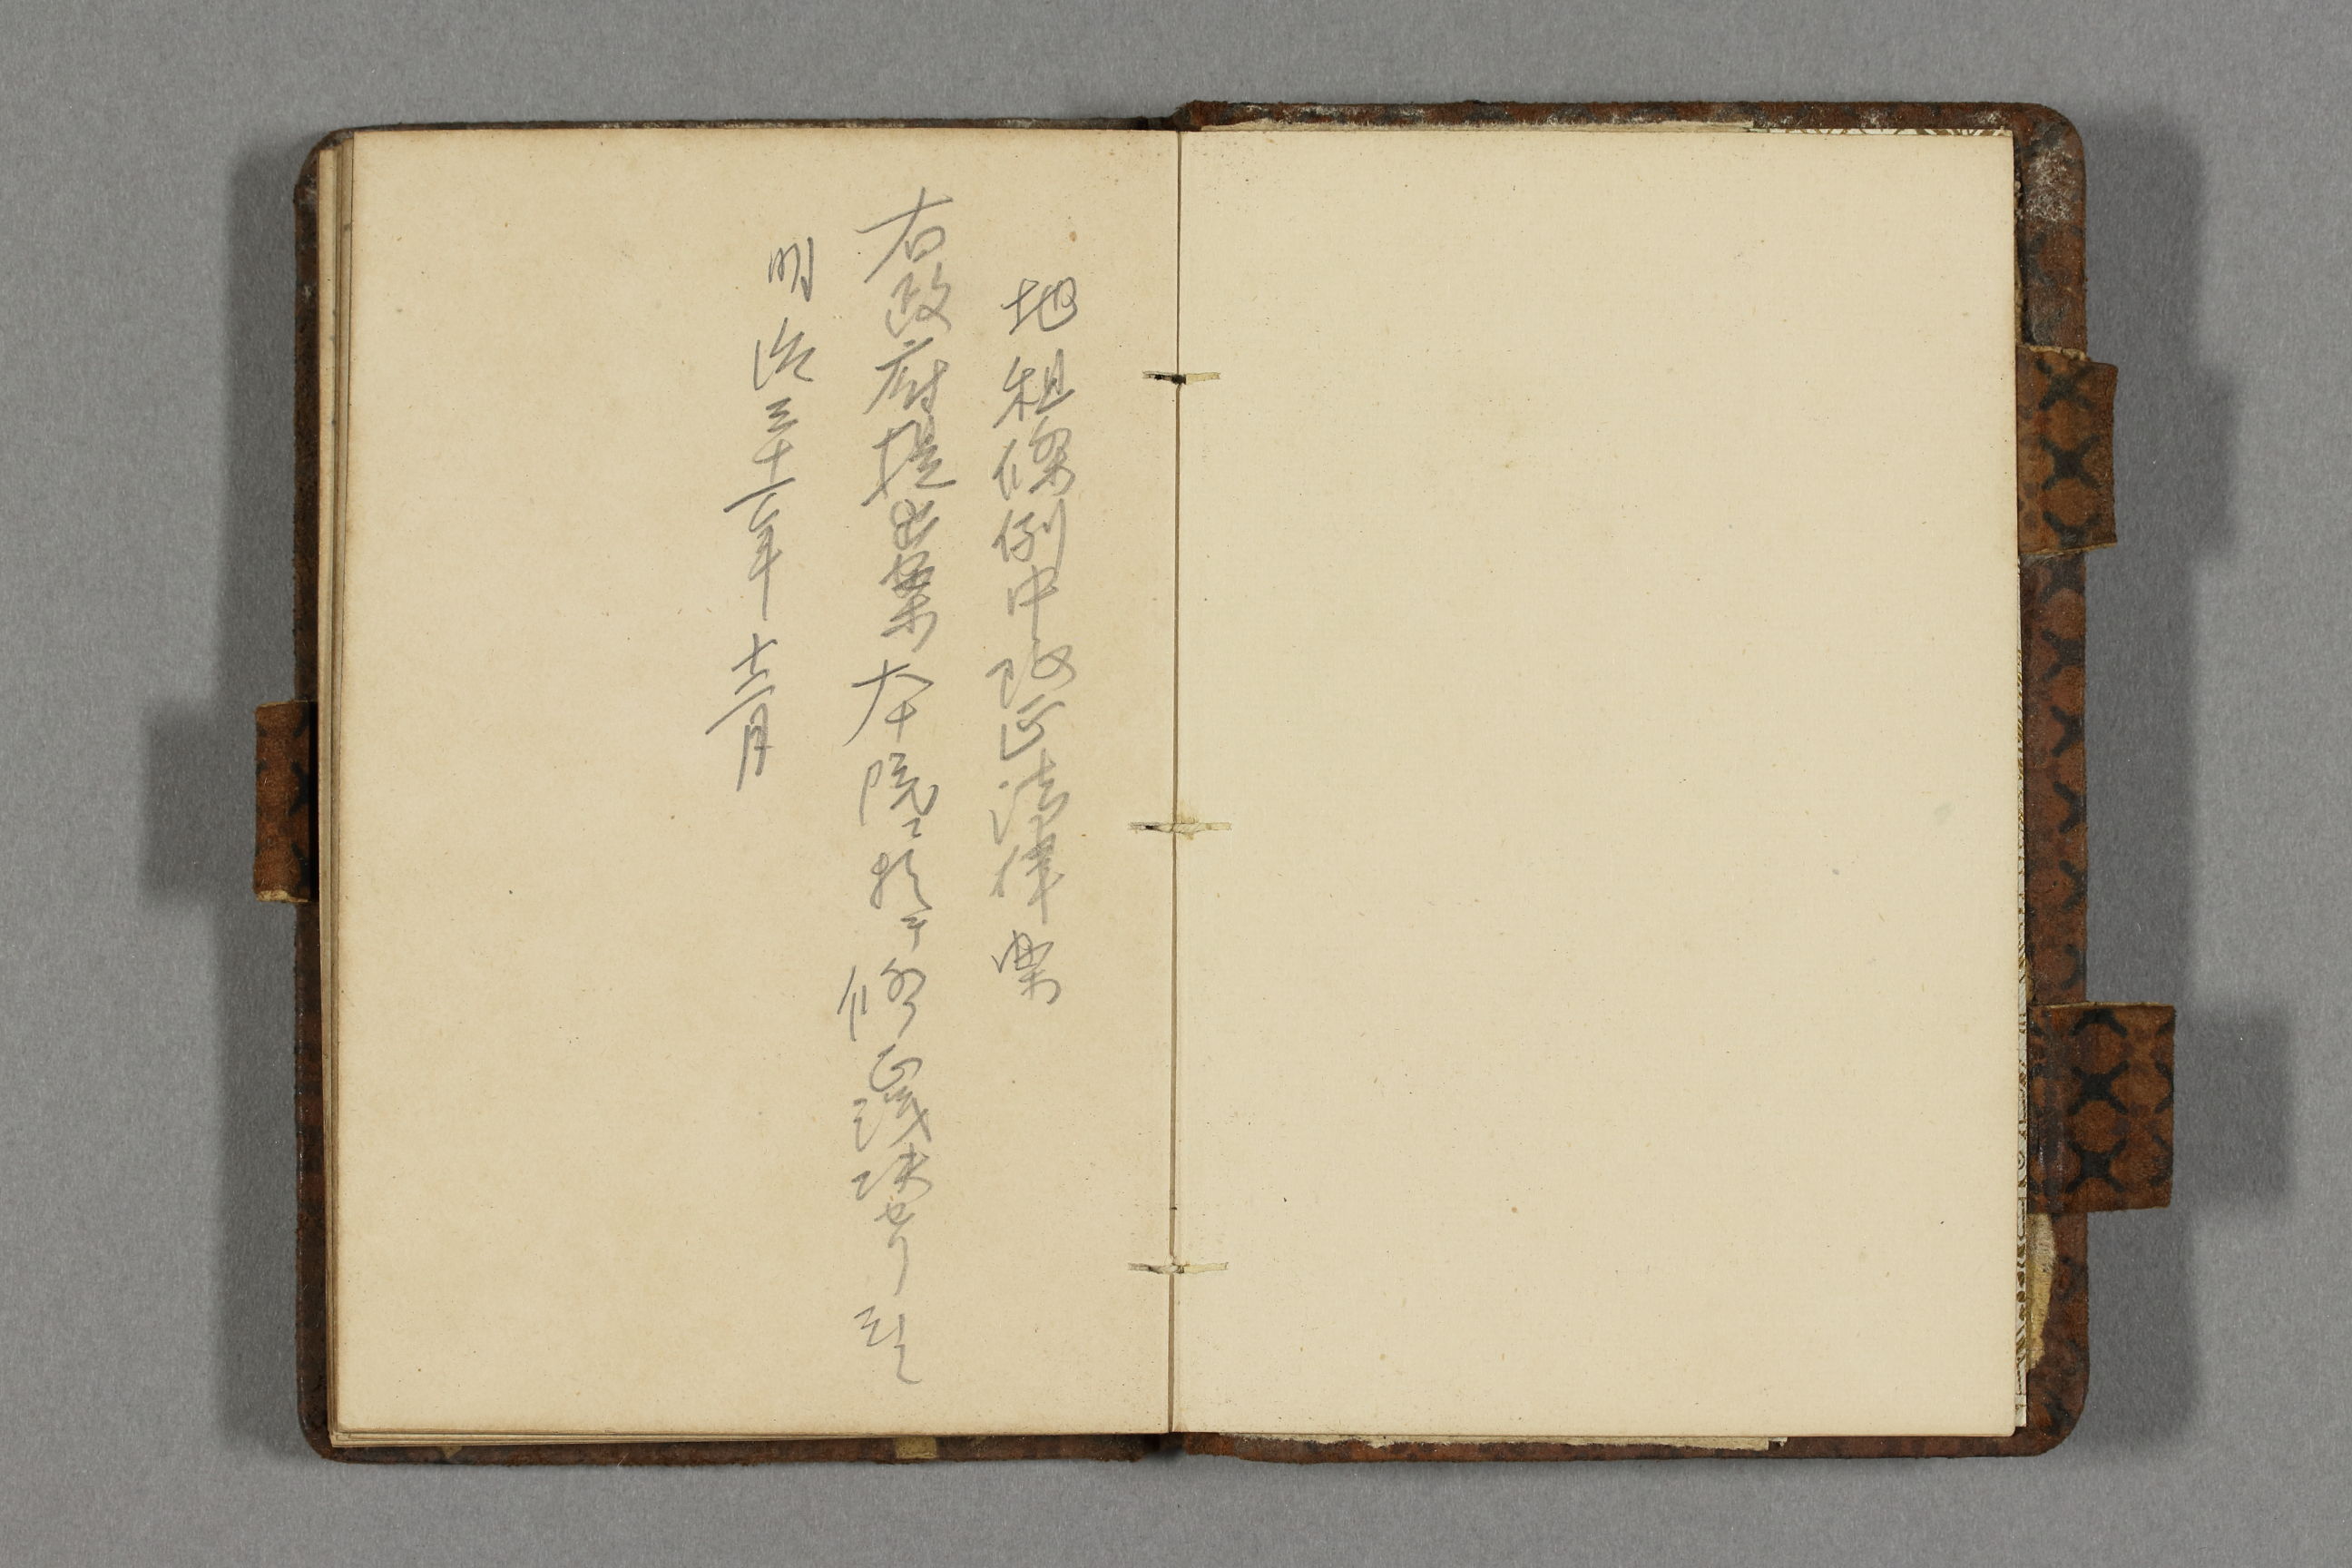 地租條例中改正法律案
右政府提出案本院ニ於テ修正議決セリ
明治三十一年十二月